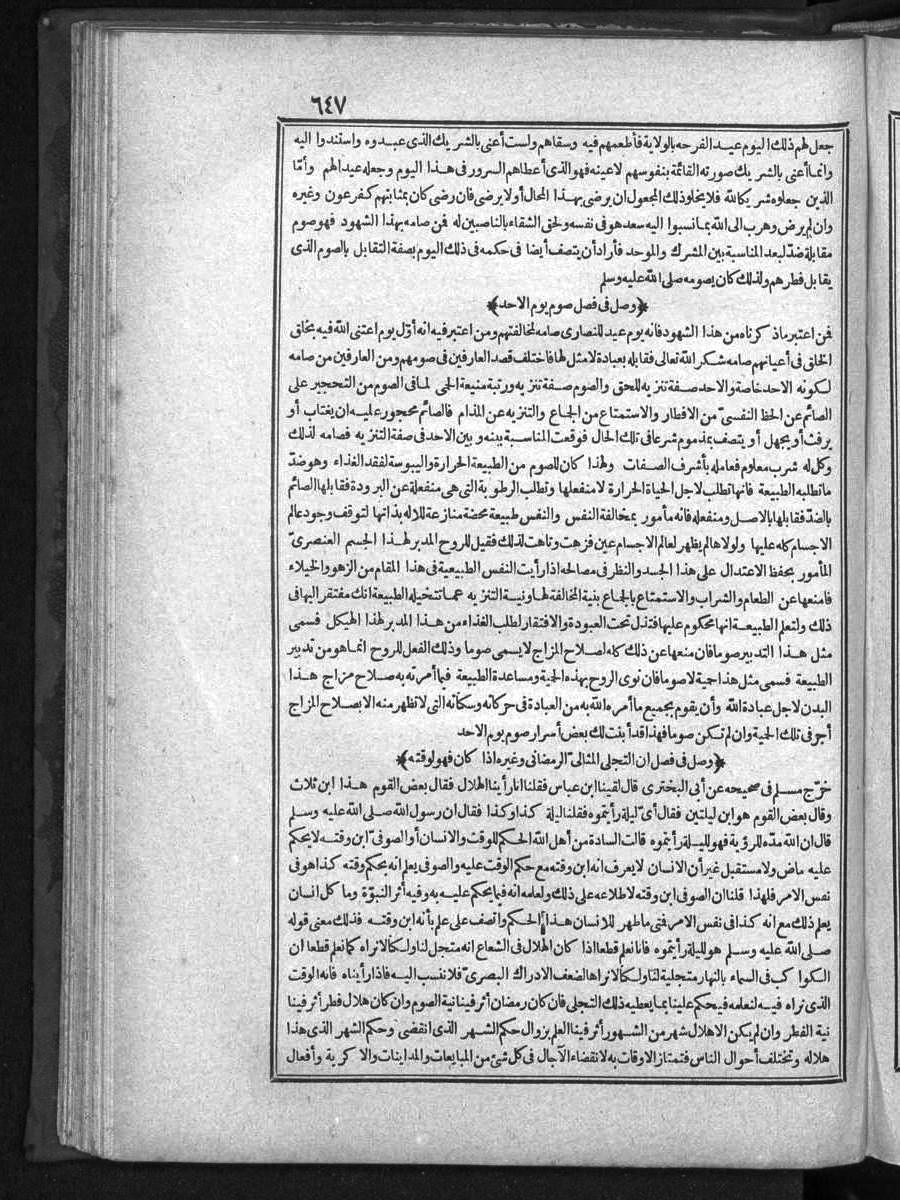 ٦٤٧
جعل لهم ذلك اليوم عيد الفرحه بالولاية فأطعمهم فيه وسقاهم ولست أعنى بالشريك الذى عبدوه واستندوا اليه
وانما أعنى بالشريك صورته القائمة بنفوسهم لاعينه فهو الذى أعطاهم السرور فى هذا اليوم وجعله عيدا لهم وأمّا
الذين جعلوه شريكالله فلايخلو ذلك المجعول ان يرضى بهذا المحال أولا يرضى فان رضى كان بمثابتهم كفرعون وغيره
وان لم يرض وهرب الى الله ممانسبوا اليه سعد هو فى نفسه ولحق الشقاء بالناصبين له فمن صامه بهذا الشهود فهو صوم
مقابلة ضدّ لبعد المناسبة بين المشرك والموحد فأراد أن يتصف أيضا فى حكمه فى ذلك اليوم بصفة التقابل بالصوم الذى
يقابل فطرهم ولذلك كان يصومه صلى الله عليه وسلم
﴿وصل فى فصل صوم يوم الاحد﴾
فمن اعتبر ماذكرناه من هذا الشهود فانه يوم عيد للنصارى صامه لمخالفتهم ومن اعتبر فيه انه أوّل يوم اعتنى الله فيه بخلق
الخلق فى أعيانهم صامه شكرالله تعالى فقابله بعبادة لا مثل لها فاختلف قصد العارفين فى صومهم ومن العارفين من صامه
لكونه الاحد خاصة والاحد صفة تنزيه للحق والصوم صفة تنزيه ورتبة منيعة الحمى لما فى الصوم من التحجير على
الصائم عن الحظ النفسىّ من الافطار والاستمتاع من الجماع والتنزيه عن المذام فالصائم محجور عليه ان يغتاب أو
يرفث أو يجهل أو يتصف بمذموم شرعا فى تلك الحال فوقعت المناسبة بينه وبين الاحد فى صفة التنزيه فصامه لذلك
وكل له شرب معلوم فعامله بأشرف الصفات ولهذا كان للصوم من الطبيعة الحرارة واليبوسة لفقد الغذاء وهو ضدّ
ما تطلبه الطبيعة فانها تطلب لاجل الحياة الحرارة لا منفعلها وتطلب الرطوبة التى هى منفعلة عن البرودة فقابلها الصائم
بالضدّ فقابلها بالاصل ومنفعله فانه مأمور بمخالفة النفس والنفس طبيعة محضة منازعة للاله بذاتها لتوقف وجود عالم
الاجسام كله عليها ولولاها لم يظهر لعالم الاجسام عين فزهت وتاهت لذلك فقيل للروح المدبر لهذا الجسم العنصرىّ
المأمور بحفظ الاعتدال على هذا الجسد والنظر فى مصالحه اذا رأيت النفس الطبيعية فى هذا المقام من الزهو والخيلاء
فامنعها عن الطعام والشراب والاستمتاع بالجماع بنية المخالفة لها ونية التنزيه عما تتخيله الطبيعة انك مفتقر اليها فى
ذلك ولتعلم الطبيعة انها محكوم عليها فتذل تحت العبودة والافتقار لطلب الغذاء من هذا المدبر لهذا الهيكل فسمى
مثل هذا التدبير صوما فان منعها عن ذلك كله لصلاح المزاج لا يسمى صوما وذلك الفعل للروح انما هو من تدبير
الطبيعة فسمى مثل هذا حمية لا صوما فان نوى الروح بهذه الحمية ومساعدة الطبيعة فيما أمرته به صلاح مزاج هذا
البدن لاجل عبادة الله وأن يقوم بجميع ما أمره الله به من العبادة فى حركاته وسكناته التى لا تظهر منه الا بصلاح المزاج
أجر فى تلك الحمية وان لم تكن صوما فهذا قد أبنت لك بعض أسرار صوم يوم الاحد
﴿وصل فى فصل ان التجلى المثالىّ الرمضانى وغيره اذا كان فهو لوقته﴾
خرّج مسلم فى صحيحه عن أبى البخترى قال لقينا ابن عباس فقلنا انا رأينا الهلال فقال بعض القوم هذا ابن ثلاث
وقال بعض القوم هو ابن ليلتين فقال أىّ ليلة رأيتموه فقلنا ليلة كذا وكذا فقال ان رسول الله صلى الله عليه وسلم
قال ان الله مدّه للرؤية فهو لليلة رأيتموه قالت السادة من أهل الله الحكم للوقت والانسان أو الصوفىّ ابن وقته لا يحكم
عليه ماض ولا مستقبل غير أن الانسان لا يعرف انه ابن وقته مع حكم الوقت عليه والصوفى يعلم انه بحكم وقته كذا هو فى
نفس الامر فلهذا قلنا ان الصوفى ابن وقته لاطلاعه على ذلك ولعلمه انه فيما يحكم عليه به وفيه أثر النبوّة وما كل انسان
يعلم ذلك مع انه كذا فى نفس الامر فمتى ما ظهر للانسان هذا الحكم واتصف على علم بأنه ابن وقته فذلك معنى قوله
صلى الله عليه وسلم هو لليلة رأيتموه فانا نعلم قطعا اذا كان الهلال فى الشعاع انه متجل لنا ولكنا لا نراه كما نعلم قطعا ان
الكواكب فى السماء بالنهار متجلية لنا ولكنا لا نراها لضعف الادراك البصرىّ فلا ننسب اليه فاذا رأيناه فانه الوقت
الذى نراه فيه لنعلمه فيحكم علينا بما يعطيه ذلك التجلى فان كان رمضان أثر فينا نية الصوم وان كان هلال فطر أثر فينا
نية الفطر وان لم يكن الا هلال شهر من الشهور أثر فينا العلم بزوال حكم الشهر الذى انقضى وحكم الشهر الذى هذا
هلاله وتختلف أحوال الناس فتمتاز الاوقات به لانقضاء الآجال فى كل شئ من المبايعات والمداينات والاكرية وأفعال